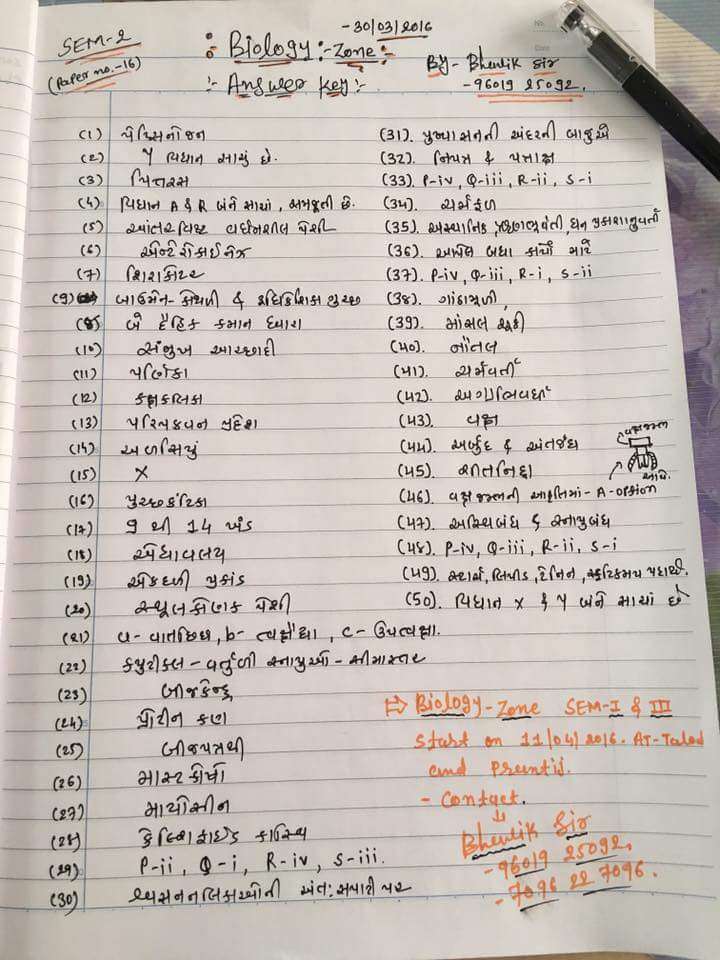 -30/03/2016
SEM-2
Biology :- Zone :-
(Paper no.-16)
By- Bhavik Sir
:- Answer Key :-
-96019 25092.
(1) પેપ્સિનોજન
(2) Y વિધાન સાચું છે.
(3) પિત્તરસ
(4) વિધાન A & R બંને સાચાં, સમજૂતી છે.
(5) આંતરવિષ્ટ વર્ધનશીલ પેશી
(6) એન્ટેરોકાઈનેઝ
(7) શિરાકોટર
(9) બાઉમેન-કોથળી & રુધિરકેશિકા ગુચ્છ
(8) બે દૈહિક કમાન દ્વારા
(10) સંમુખ આચ્છાદી
(11) પર્ણિકા
(12) કક્ષકલિકા
(13) પરિપક્વન પ્રદેશ
(14) અળસિયું
(15) X
(16) પુચ્છકંટિકા
(17) 9 થી 14 ખંડ
(18) એધાવલય
(19) એકદળી પ્રકાંડ
(20) સ્થૂલકોણક પેશી
(21) a- વાતછિદ્ર, b- ત્વક્ષૈધા, c- ઉપત્વક્ષા.
(22) ક્યુટીકલ - વર્તુળી સ્નાયુઓ - સીમાસ્તર
(23) બીજકેન્દ્ર
(24) પ્રોટીન કણ
(25) બીજપત્રથી
(26) માસ્ટ કોષો
(27) માયોસીન
(28) કેલ્સિફાઈડ કાસ્થિ
(29) P-ii, Q-i, R-iv, S-iii.
(30) શ્વસનનલિકાઓની અંતઃસપાટી પર
(31). પુષ્પાસનની અંદરની બાજુએ
(32). નિપત્ર & પત્રાક્ષ
(33). P-iv, Q-iii, R-ii, S-i
(34). ચર્મફળ
(35). અસ્થાનિક, ધન પ્રકાશાનુવર્તી
(36). આપેલ બધા કાર્યો માટે
(37). P-iv, Q-iii, R-i, S-ii
(38). ગાંઠામૂળી
(39). માંસલ શૂકી
(40). બોતલ
(41). ચર્મવર્તી
(42). અગ્રાભિવર્ધી
(43). વજ્ર
(44). અર્બુદ & અંતર્જંઘ
(45). શીતનિદ્રા
(46). આકૃતિમાં - A-option
(47). અસ્થિબંધ & સ્નાયુબંધ
(48). P-iv, Q-iii, R-ii, S-i
(49). સ્ટાર્ચ, લિપીડ, ટેનિન, સ્ફટિકમય પદાર્થો.
(50). વિધાન X & Y બંને સાચાં છે
⇒ Biology-Zone SEM-I & III
Start on 11/04/2016. AT-Talod
and Prantij.
- Contact.
Bhavik Sir
-96019 25092.
-7096 22 7096.